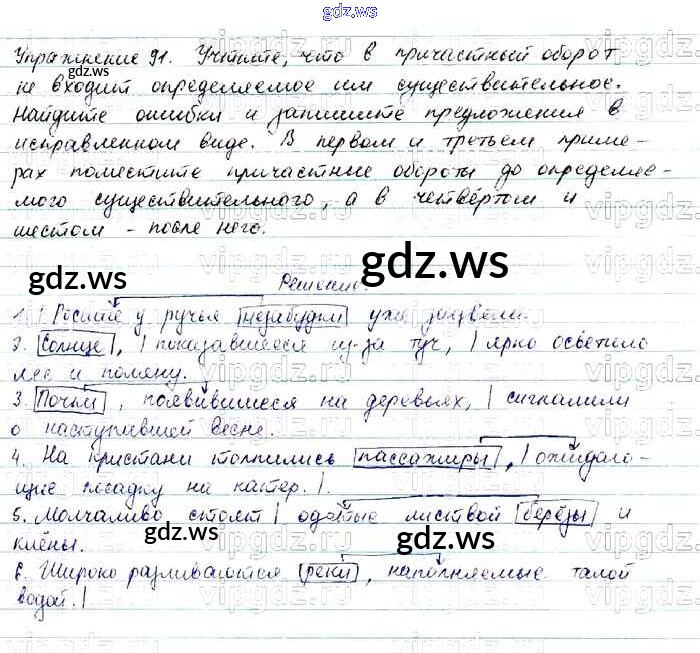 gdz.ws
Упражнение 91. Учтите, что в причастный оборот
не входит определяемое им существительное.
Найдите ошибки и запишите предложения в
исправленном виде. В первом и третьем приме-
рах поместите причастные обороты до определяе-
мого существительного, а в четвёртом и
шестом - после него.
gdz.ws gdz.ws
Решение.
1. | Росшие у ручья незабудки уже зацвели.
2. Солнце, | показавшееся из-за туч, | ярко осветило
лес и поляну.
3. Почки, появившиеся на деревьях, | сигналили
о наступившей весне.
4. На пристани толпились пассажиры, | ожидаю-
щие посадку на катер. |.
5. Молчаливо стоят | одетые листвой берёзы и
клёны.
gdz.ws gdz.ws
6. Широко разливаются реки, наполняемые талой
водой. |
vipgdz.ws
gdz.ws